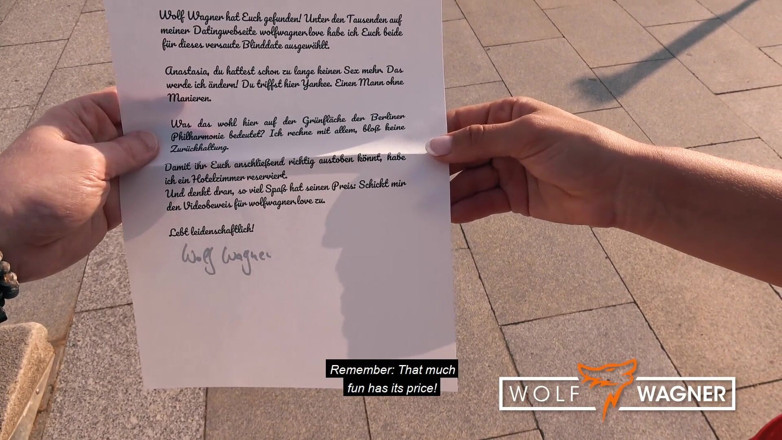 Wolf Wagner hat Euch gefunden! Unter den Tausenden auf
meiner Datingwebseite wolfwagner.love habe ich Euch beide
für dieses versaute Blinddate ausgewählt.
Anastasia, du hattest schon zu lange keinen Sex mehr. Das
werde ich ändern! Du triffst hier Yankee. Einen Mann ohne
Manieren.
Was das wohl hier auf der Grünfläche der Berliner
Philharmonie bedeutet? Ich rechne mit allem, bloß keine
Zurückhaltung.
Damit ihr Euch anschließend richtig austoben könnt, habe
ich ein Hotelzimmer reserviert.
Und denkt dran, so viel Spaß hat seinen Preis: Schickt mir
den Videobeweis für wolfwagner.love zu.
Lebt leidenschaftlich!
Wolf Wagner
Remember: That much
fun has its price!
WOLF WAGNER